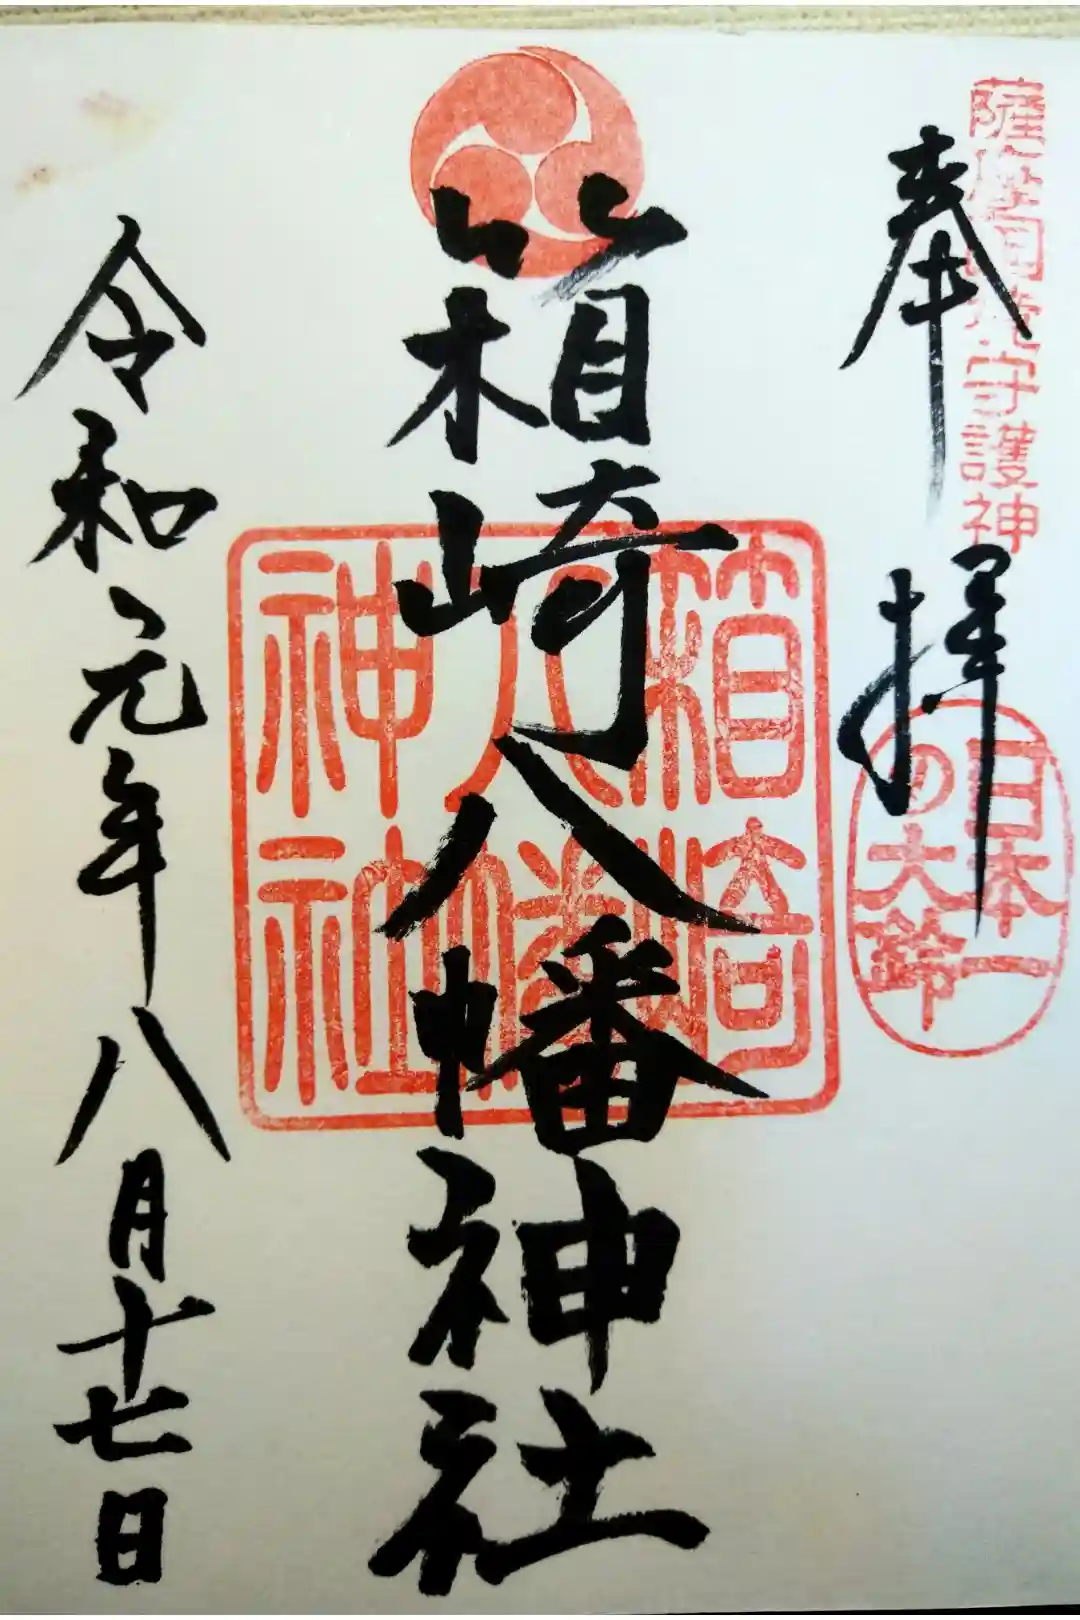 薩摩国境守護神
奉拝
日本一
の大鈴
箱崎八幡神社
箱崎
八幡
神社
令和元年八月十七日